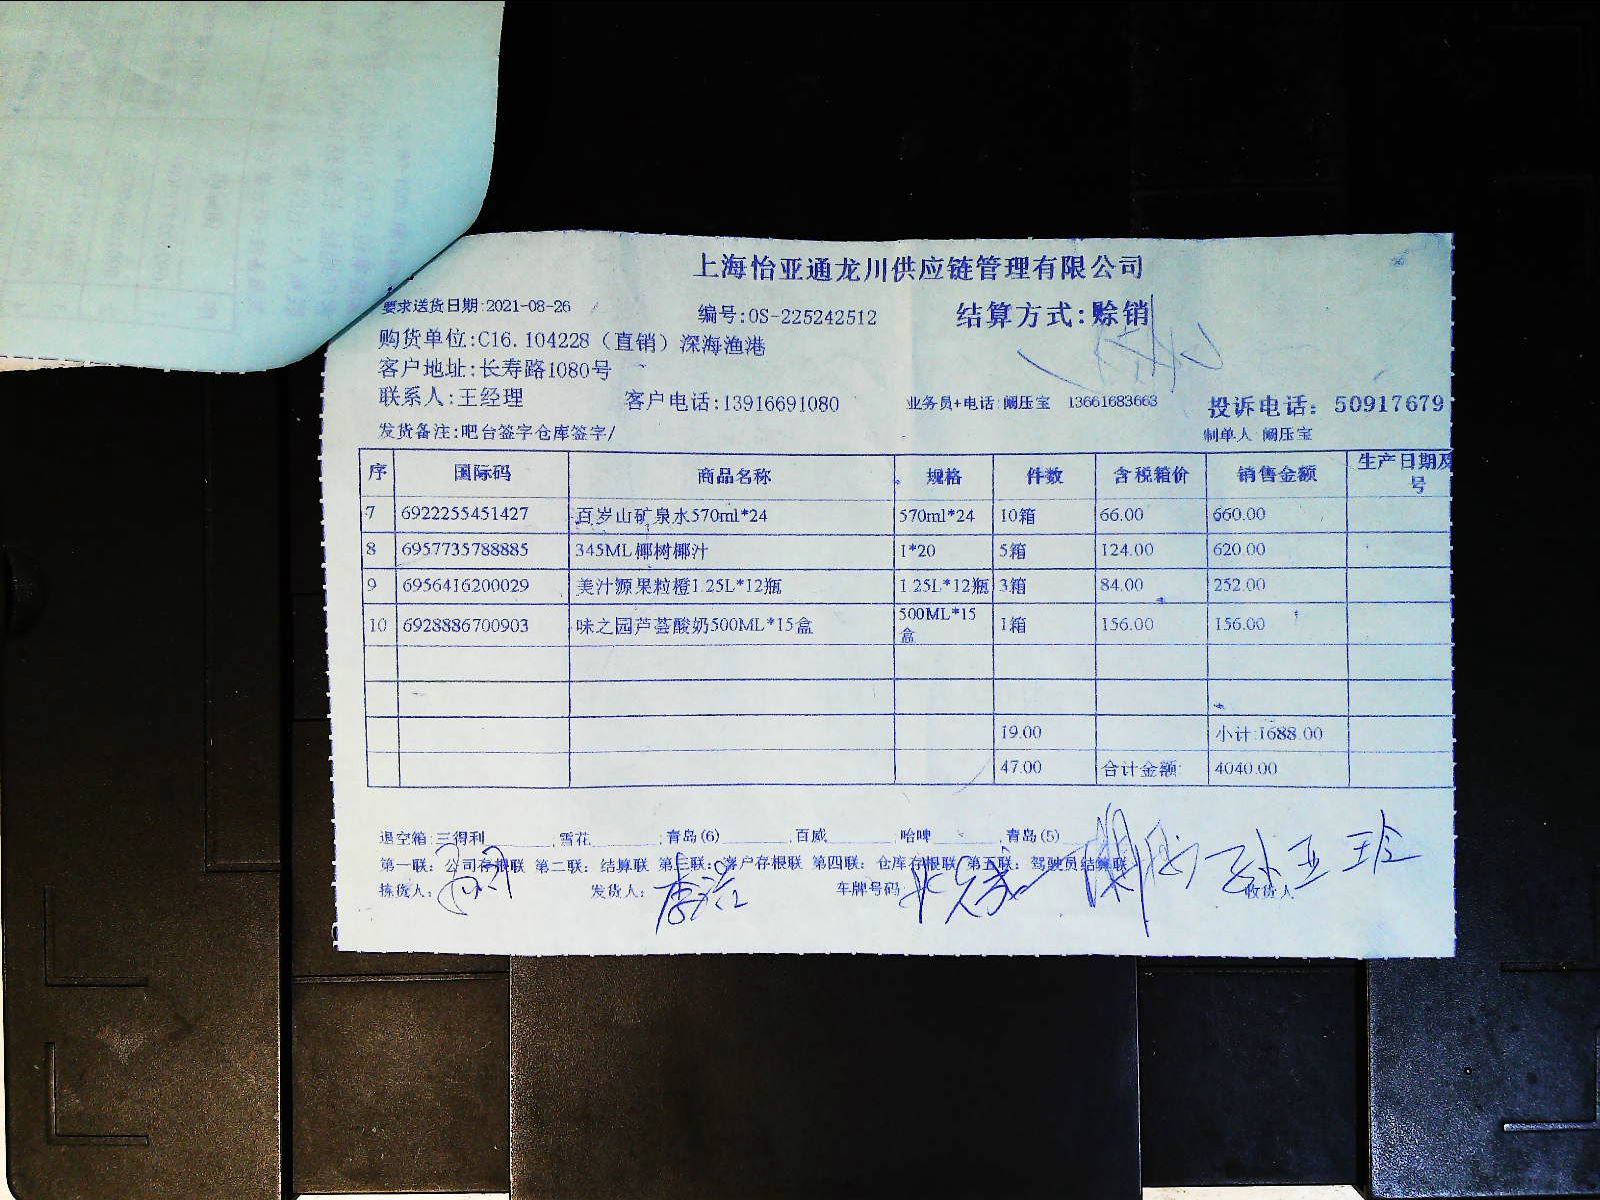 上海怡亚通龙川供应链管理有限公司
要求送货日期:2021-08-26 编号:OS-225242512 结算方式:赊销
购货单位:C16.104228（直销）深海渔港
客户地址:长寿路1080号
联系人:王经理 客户电话:13916691080 业务员+电话:阚压宝 13661683663 投诉电话: 50917679
发货备注:吧台签字仓库签字/ 制单人 阚压宝
序 国际码 商品名称 规格 件数 含税箱价 销售金额 生产日期及
号
7 6922255451427 百岁山矿泉水570ml*24 570ml*24 10箱 66.00 660.00
8 6957735788885 345ML椰树椰汁 1*20 5箱 124.00 620.00
9 6956416200029 美汁源果粒橙1.25L*12瓶 1.25L*12瓶 3箱 84.00 252.00
10 6928886700903 味之园芦荟酸奶500ML*15盒 500ML*15盒 1箱 156.00 156.00
19.00 小计:1688.00
47.00 合计金额: 4040.00
退空箱:三得利 ,雪花 ,青岛(6) ,百威 ,哈啤 ,青岛(5)
第一联: 公司存根联 第二联: 结算联 第三联: 客户存根联 第四联: 仓库存根联 第五联: 驾驶员结算联
拣货人: 发货人: 车牌号码: 收货人